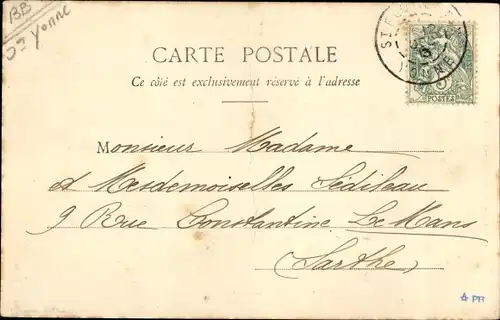 BB
Yonne
CARTE POSTALE
Ce côté est exclusivement réservé à l'adresse
POSTES
Monsieur Madame
et Mesdemoiselles Sédileau
9 Rue Constantine Le Mans
Sarthe
PR